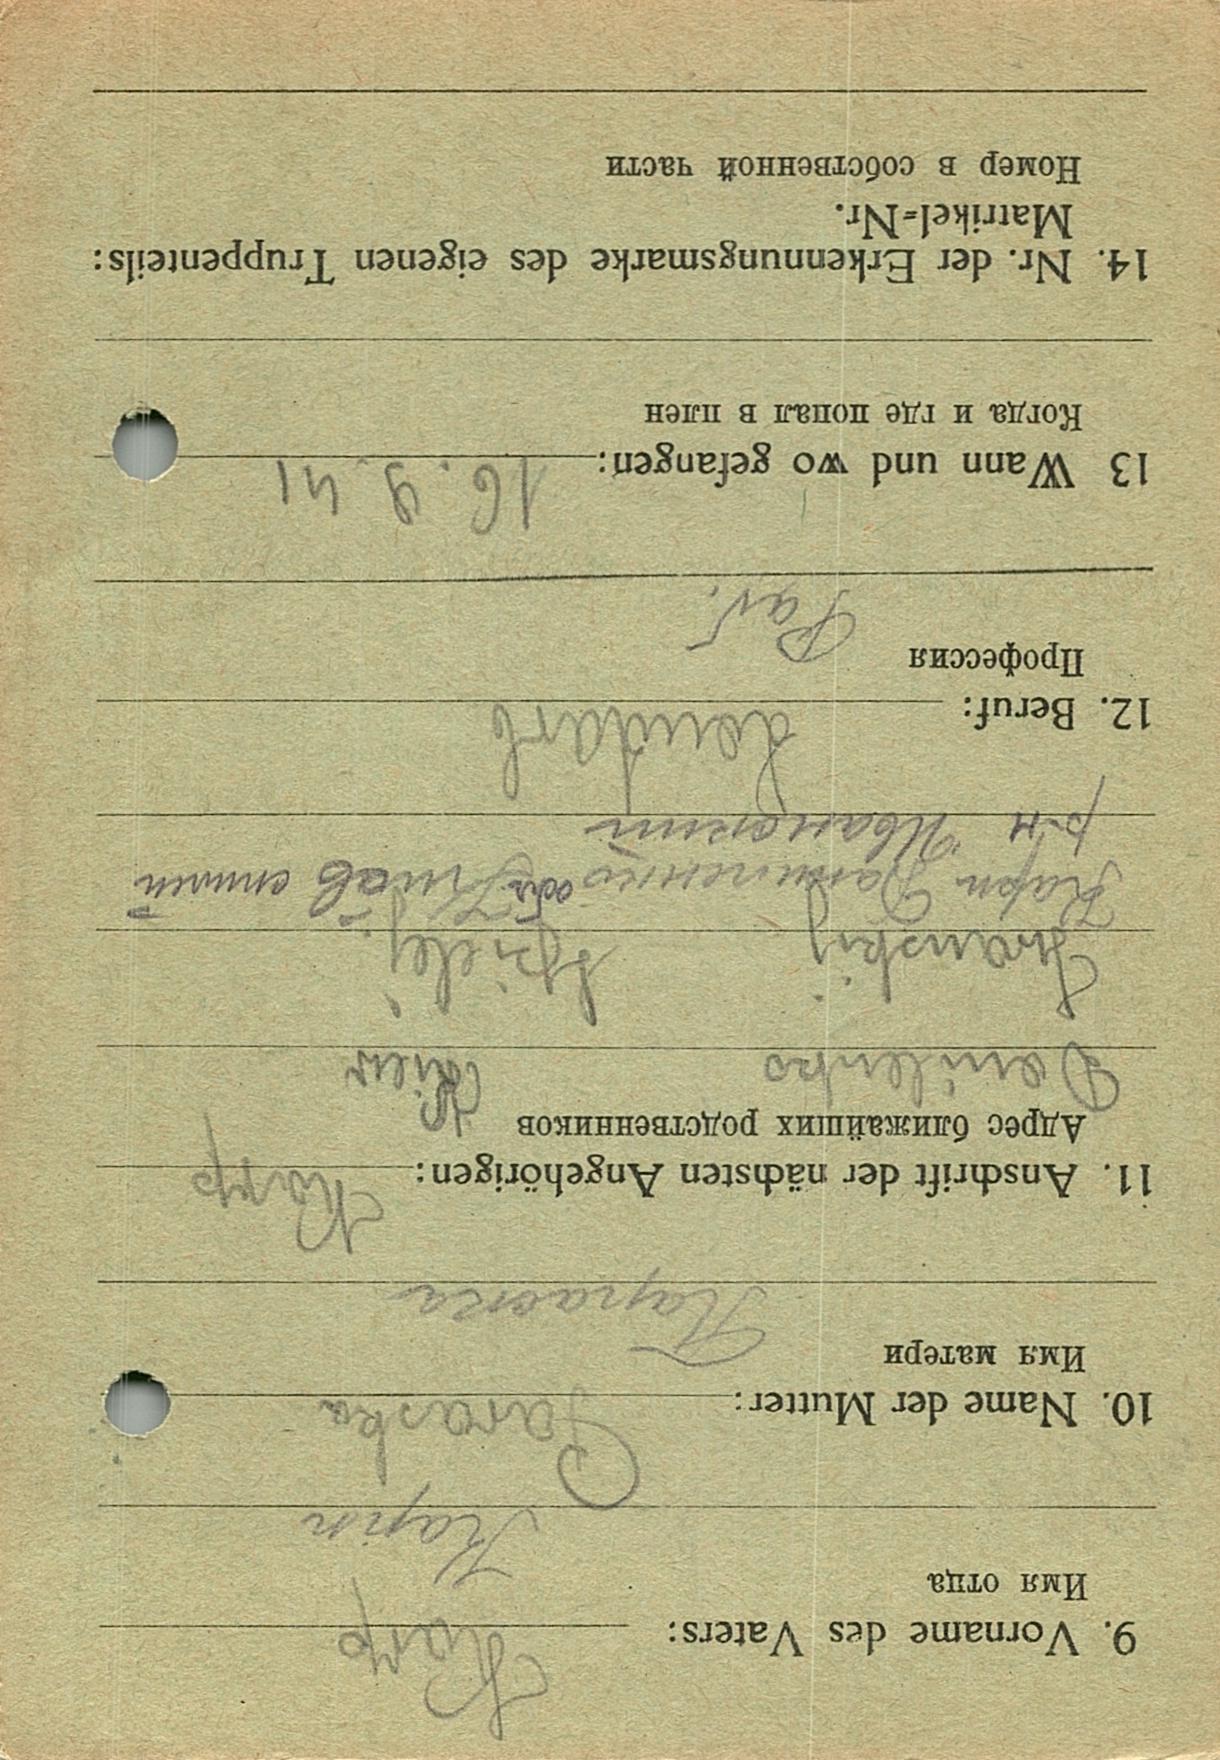 9. Vorname des Vaters: Karp
Имя отца
Карп
10. Name der Mutter: Paraska
Имя матери
Параска
11. Anschrift der nächsten Angehörigen: Karp
Адрес ближайших родственников
Danilenko Kiew
Iwanskij
Карп Даниленко обл Киев
р-н Иванский
12. Beruf: Landarb
Профессия
Раб.
13 Wann und wo gefangen: 16. 9. 41
Когда и где попал в плен
14. Nr. der Erkennungsmarke des eigenen Truppenteils:
Matrikel-Nr.
Номер в собственной части